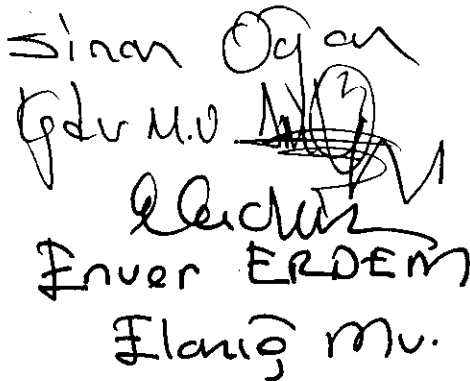 Sinan Oğan
Iğdır M.V.
Enver ERDEM
Elazığ Mv.